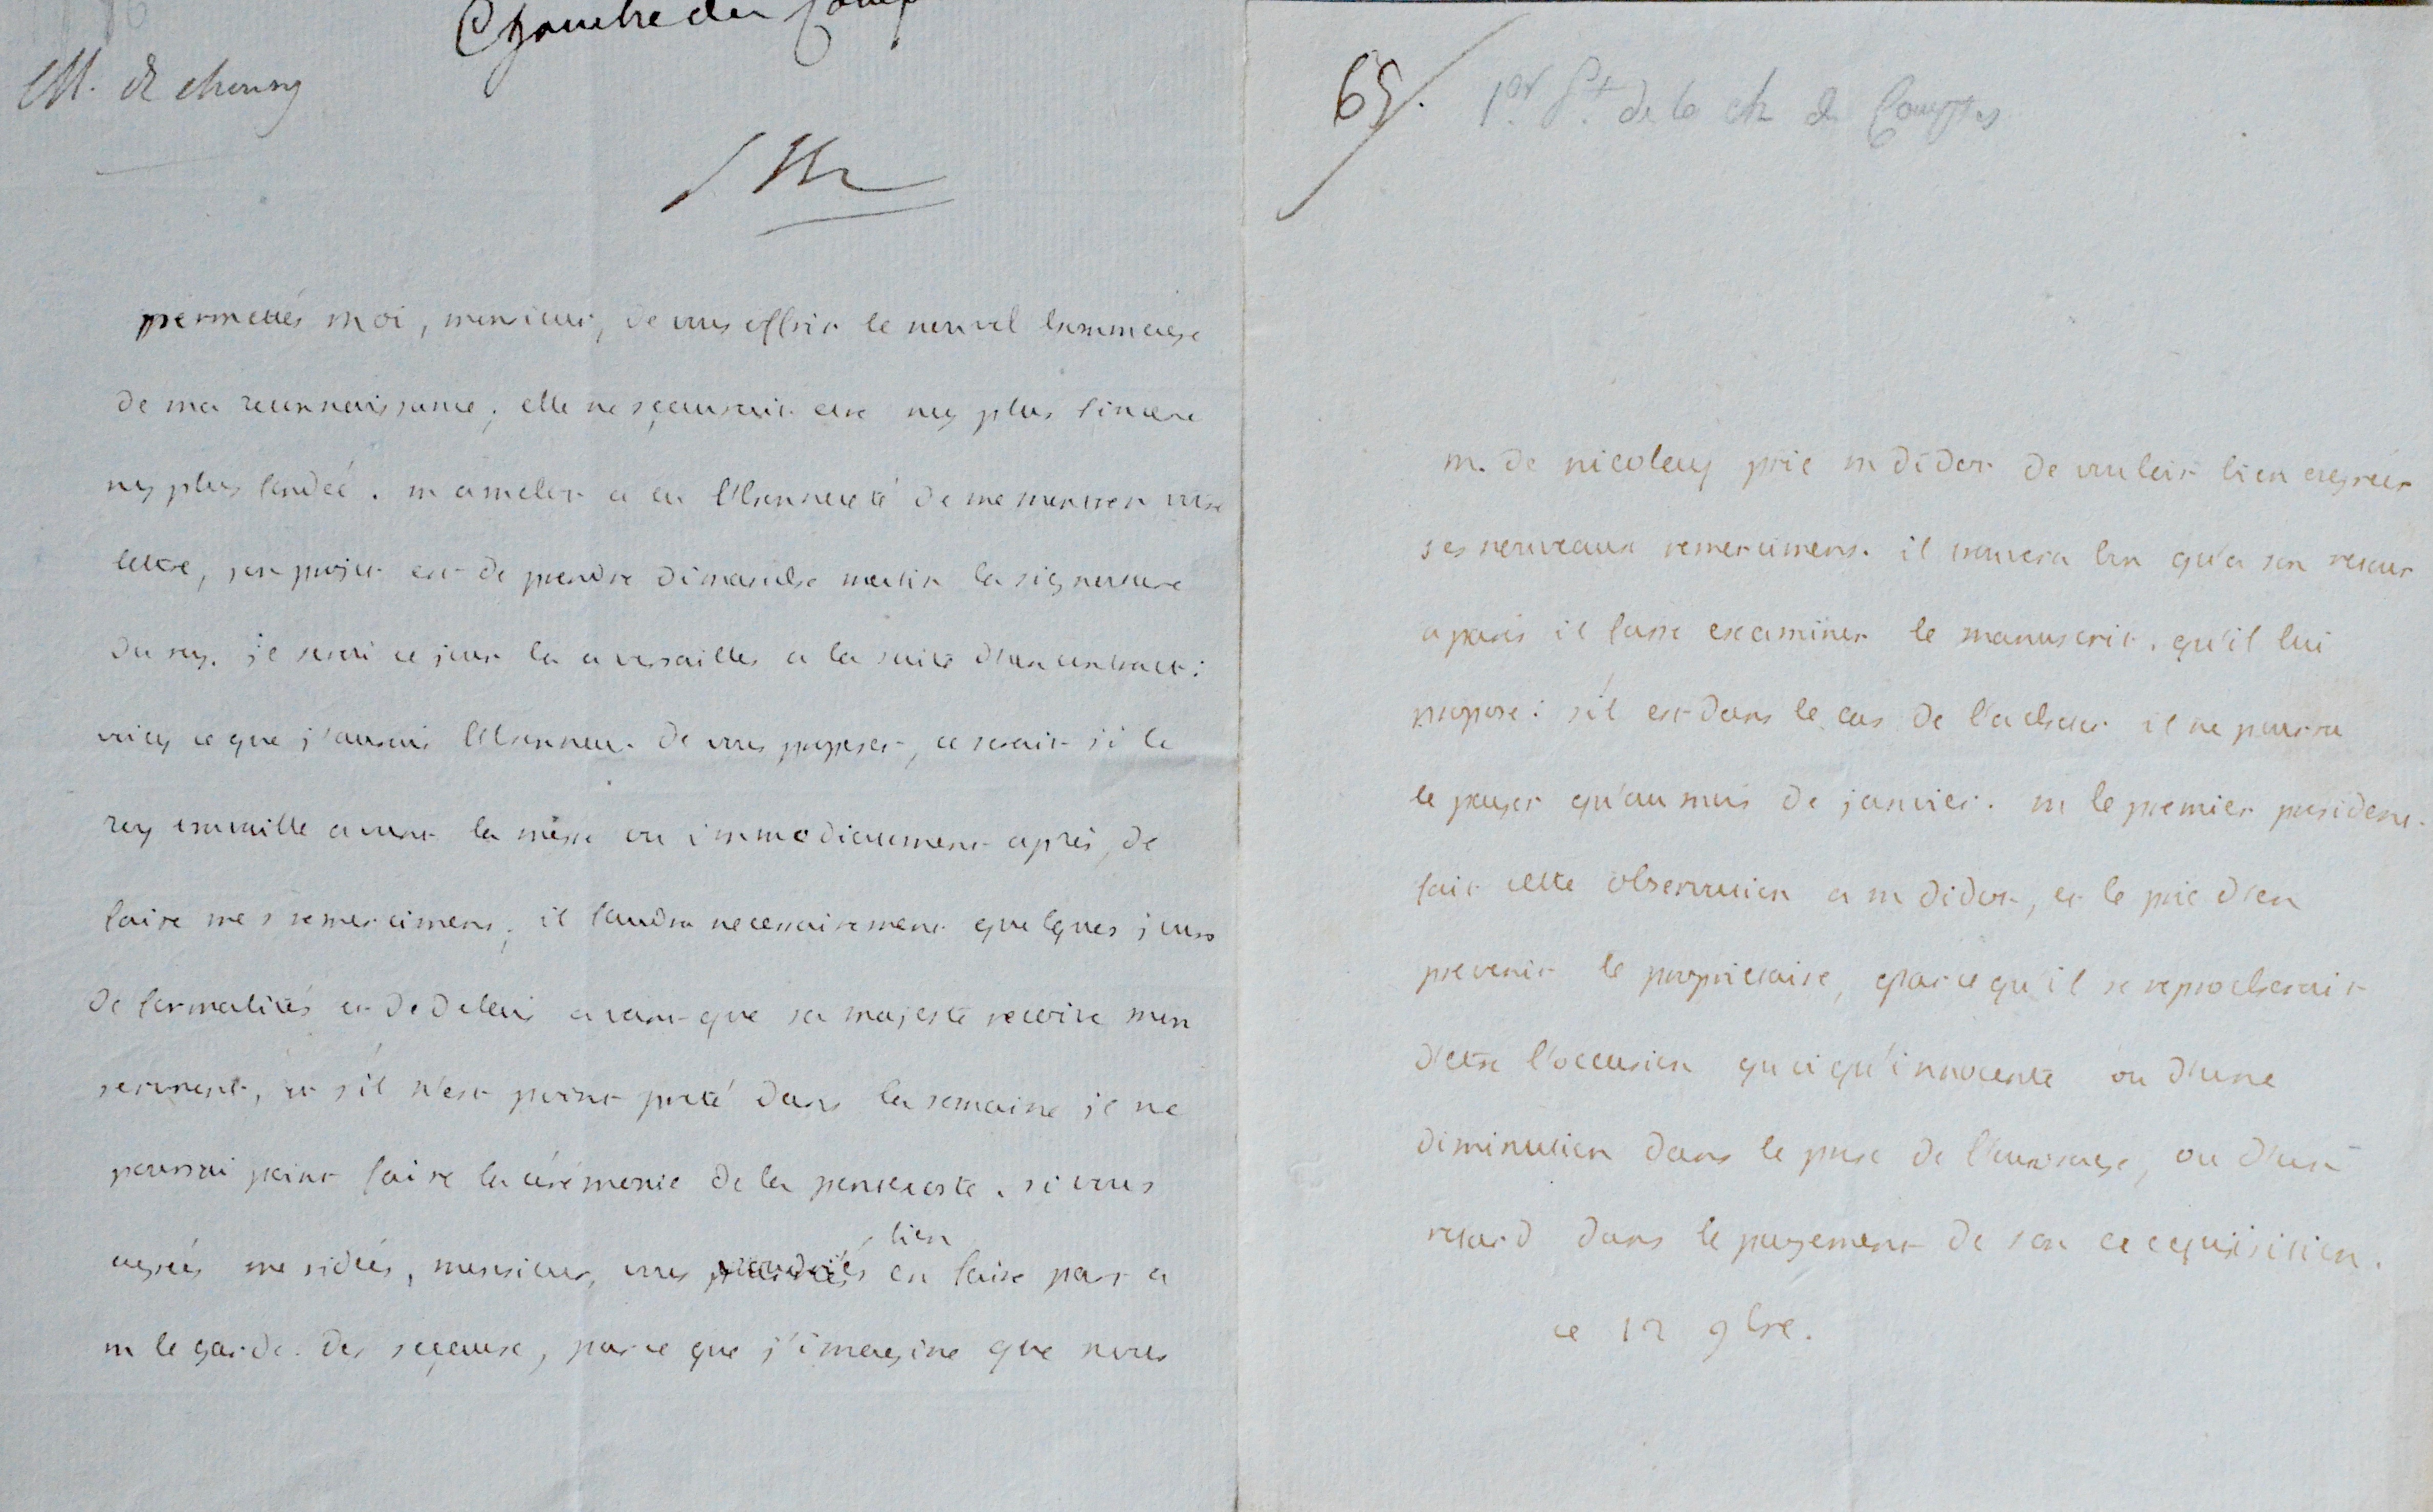 Chambre des Comp
M. de cherisy
permettés moi, monsieur, de vous offrir le nouvel hommage
de ma reconnaissance, elle ne sçaurait etre ny plus sincere
ny plus fondée. m amelot a eu l'honneteté de me montrer votre
lettre, son projet est de prendre dimanche matin la signature
du roy. je serai ce jour la a versailles a la suite d'un contract:
voicy ce que j'aurais l'honneur de vous proposer, ce serait si le
roy travaille avant la messe ou immediatement après, de
faire mes remercimens, il faudra necessairement quelques jours
de formalités et de delais avant que sa majesté recoive mon
serment, et s'il n'est point preté dans la semaine je ne
pourrai point faire la cérémonie de la pentecoste. si vous
agreés mes idées, monsieur, vous voudrés bien en faire part a
m le garde des sçeaux, parce que j'imagine que nous
65. 1er Pt de la ch de Comptes
m. de nicolay prie m didot de vouloir bien agréer
ses nouveaux remercimens. il trouvera bon qu'a son retour
a paris il fasse examiner le manuscrit. qu'il lui
propose: s'il est dans le cas de l'acheter il ne pourra
le payer qu'au mois de janvier. m le premier president
fait cette observation a m didot, et le prie d'en
prevenir le proprietaire, parce qu'il se reprocherait
d'etre l'occasion quoiqu'innocente ou d'une
diminution dans le prix de l'ouvrage, ou d'un
retard dans le payement de son acquisition.
ce 12 9bre.